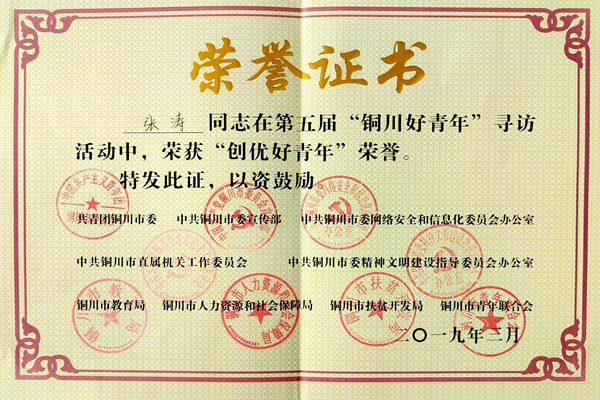 荣誉证书
张涛 同志在第五届“铜川好青年”寻访
活动中，荣获“创优好青年”荣誉。
特发此证，以资鼓励。
共青团铜川市委 中共铜川市委宣传部 中共铜川市委网络安全和信息化委员会办公室
中共铜川市直属机关工作委员会 中共铜川市委精神文明建设指导委员会办公室
铜川市教育局 铜川市人力资源和社会保障局 铜川市扶贫开发局 铜川市青年联合会
二〇一九年三月